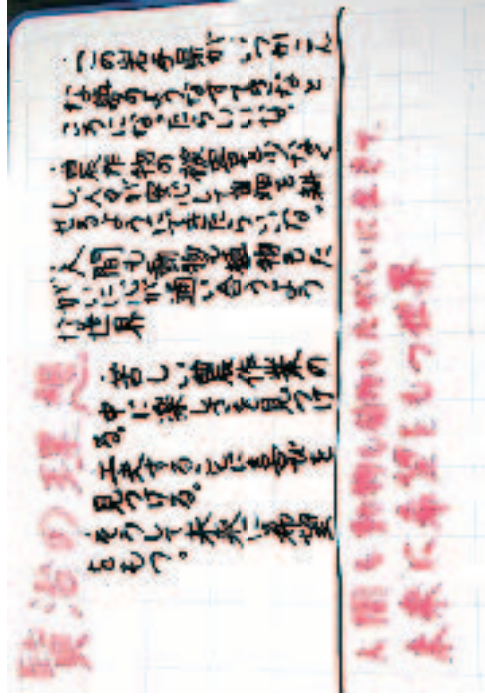 賢治の理想
・この岩手県が、いつかこん
な夢のようなすてきなと
ころになったらいいな。
・農作物の被害を少なく
し、人々が安心して田畑を耕
せるようにできたらいいな。
・人間も動物も植物もた
がいに心が通い合うよう
な世界
・苦しい農作業の
中に楽しさを見つけ
る。
・工夫することに喜びを
見つける。
・そうして未来に希望
をもつ。
人間も動物も植物もたがいに生きて、
未来に希望をもつ世界